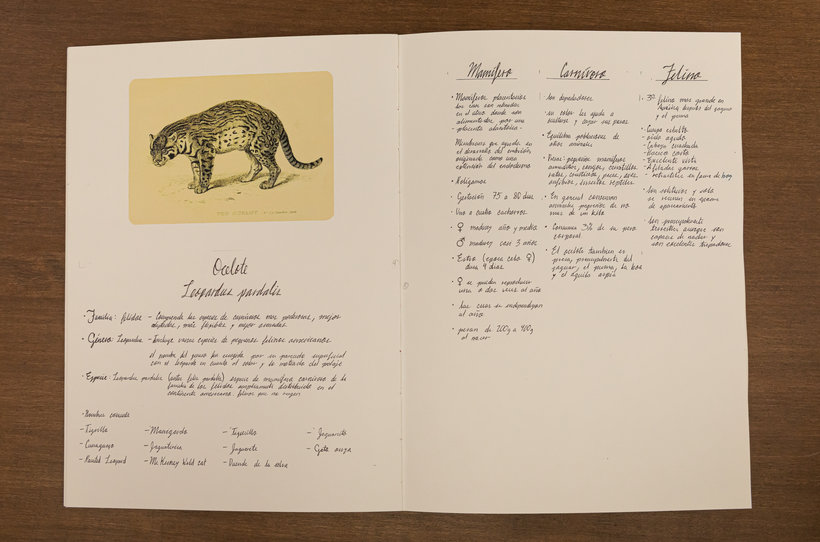 Ocelote
Leopardus pardalis
· Familia: félidae – Comprende las especies de carnívoros más poderosos, mejor
adaptados, más flexibles y mejor armados
· Género: Leopardus – Incluye varias especies de pequeños felinos americanos
el nombre del género ha surgido por su parecido superficial
con el leopardo en cuanto al color y de moteado del pelaje
· Especie: Leopardus pardalis (antes felis pardalis) especie de mamífero carnívoro de la
familia de los félidos ampliamente distribuido en el
continente americano. felinos que no rugen
· Nombre común
– Tigrillo
– Manigordo
– Tigrecillo
– Jaguarcito
– Cunaguaro
– Jaguatirica
– Jaguarete
– Gato onza
– Painted Leopard
– Mc Kenney Wild cat
– Duende de la selva
Mamífero
· Mamíferos placentarios
las crías son retenidas
en el útero donde son
alimentadas por una
placenta alantoica –
Membrana que ayuda en
el desarrollo del embrión
originada como una
extensión del endodermo
· Polígamos
· Gestación 75 a 80 días
· Uno a cuatro cachorros
· ♀ madurez año y medio
♂ madurez casi 3 años
· Estro (época celo ♀)
dura 9 días
· ♀ se pueden reproducir
una a dos veces al año
· Las crías se independizan
al año
· pesan de 200g a 400g
al nacer
Carnívoro
· Son depredadores
· su color les ayuda a
ocultarse y cazar sus presas
· Equilibra poblaciones de
otros animales
· Presas: pequeños mamíferos
armadillos, conejos, comadrillas
ratas, peces, aves,
anfibios, insectos reptiles
· En general consumen
animales pequeños de no
más de un kilo
· Consume 3% de su peso
corporal
· El ocelote también es
presa, principalmente del
jaguar, el puma, la boa
y el águila arpía
Felino
· 3er felino más grande en
América después del jaguar
y el puma
· Cuerpo esbelto
– oído agudo
– Cabeza
– Hocico corto
– Excelente vista
– Afiladas garras
– retráctiles en forma de hoz
· Son solitarios y solo
se reúnen en época
de apareamiento
· Son principalmente
terrestres aunque son
capaces de nadar y
son excelentes trepadores